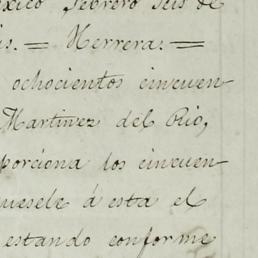 éxico febrero seis de
is. = Herrera. =
ochocientos cincuen
Martinez del Rio,
porciona los cincuen
uesele á esta el
estando conforme